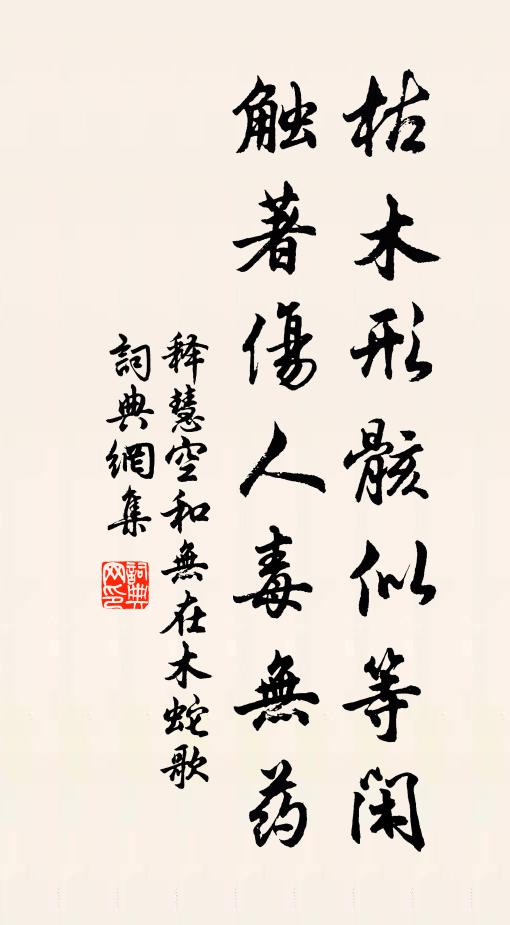 枯木形骸似等闲
触著傷人毒無药
释慧空和無在木蛇歌
詞典網集
詞典網印